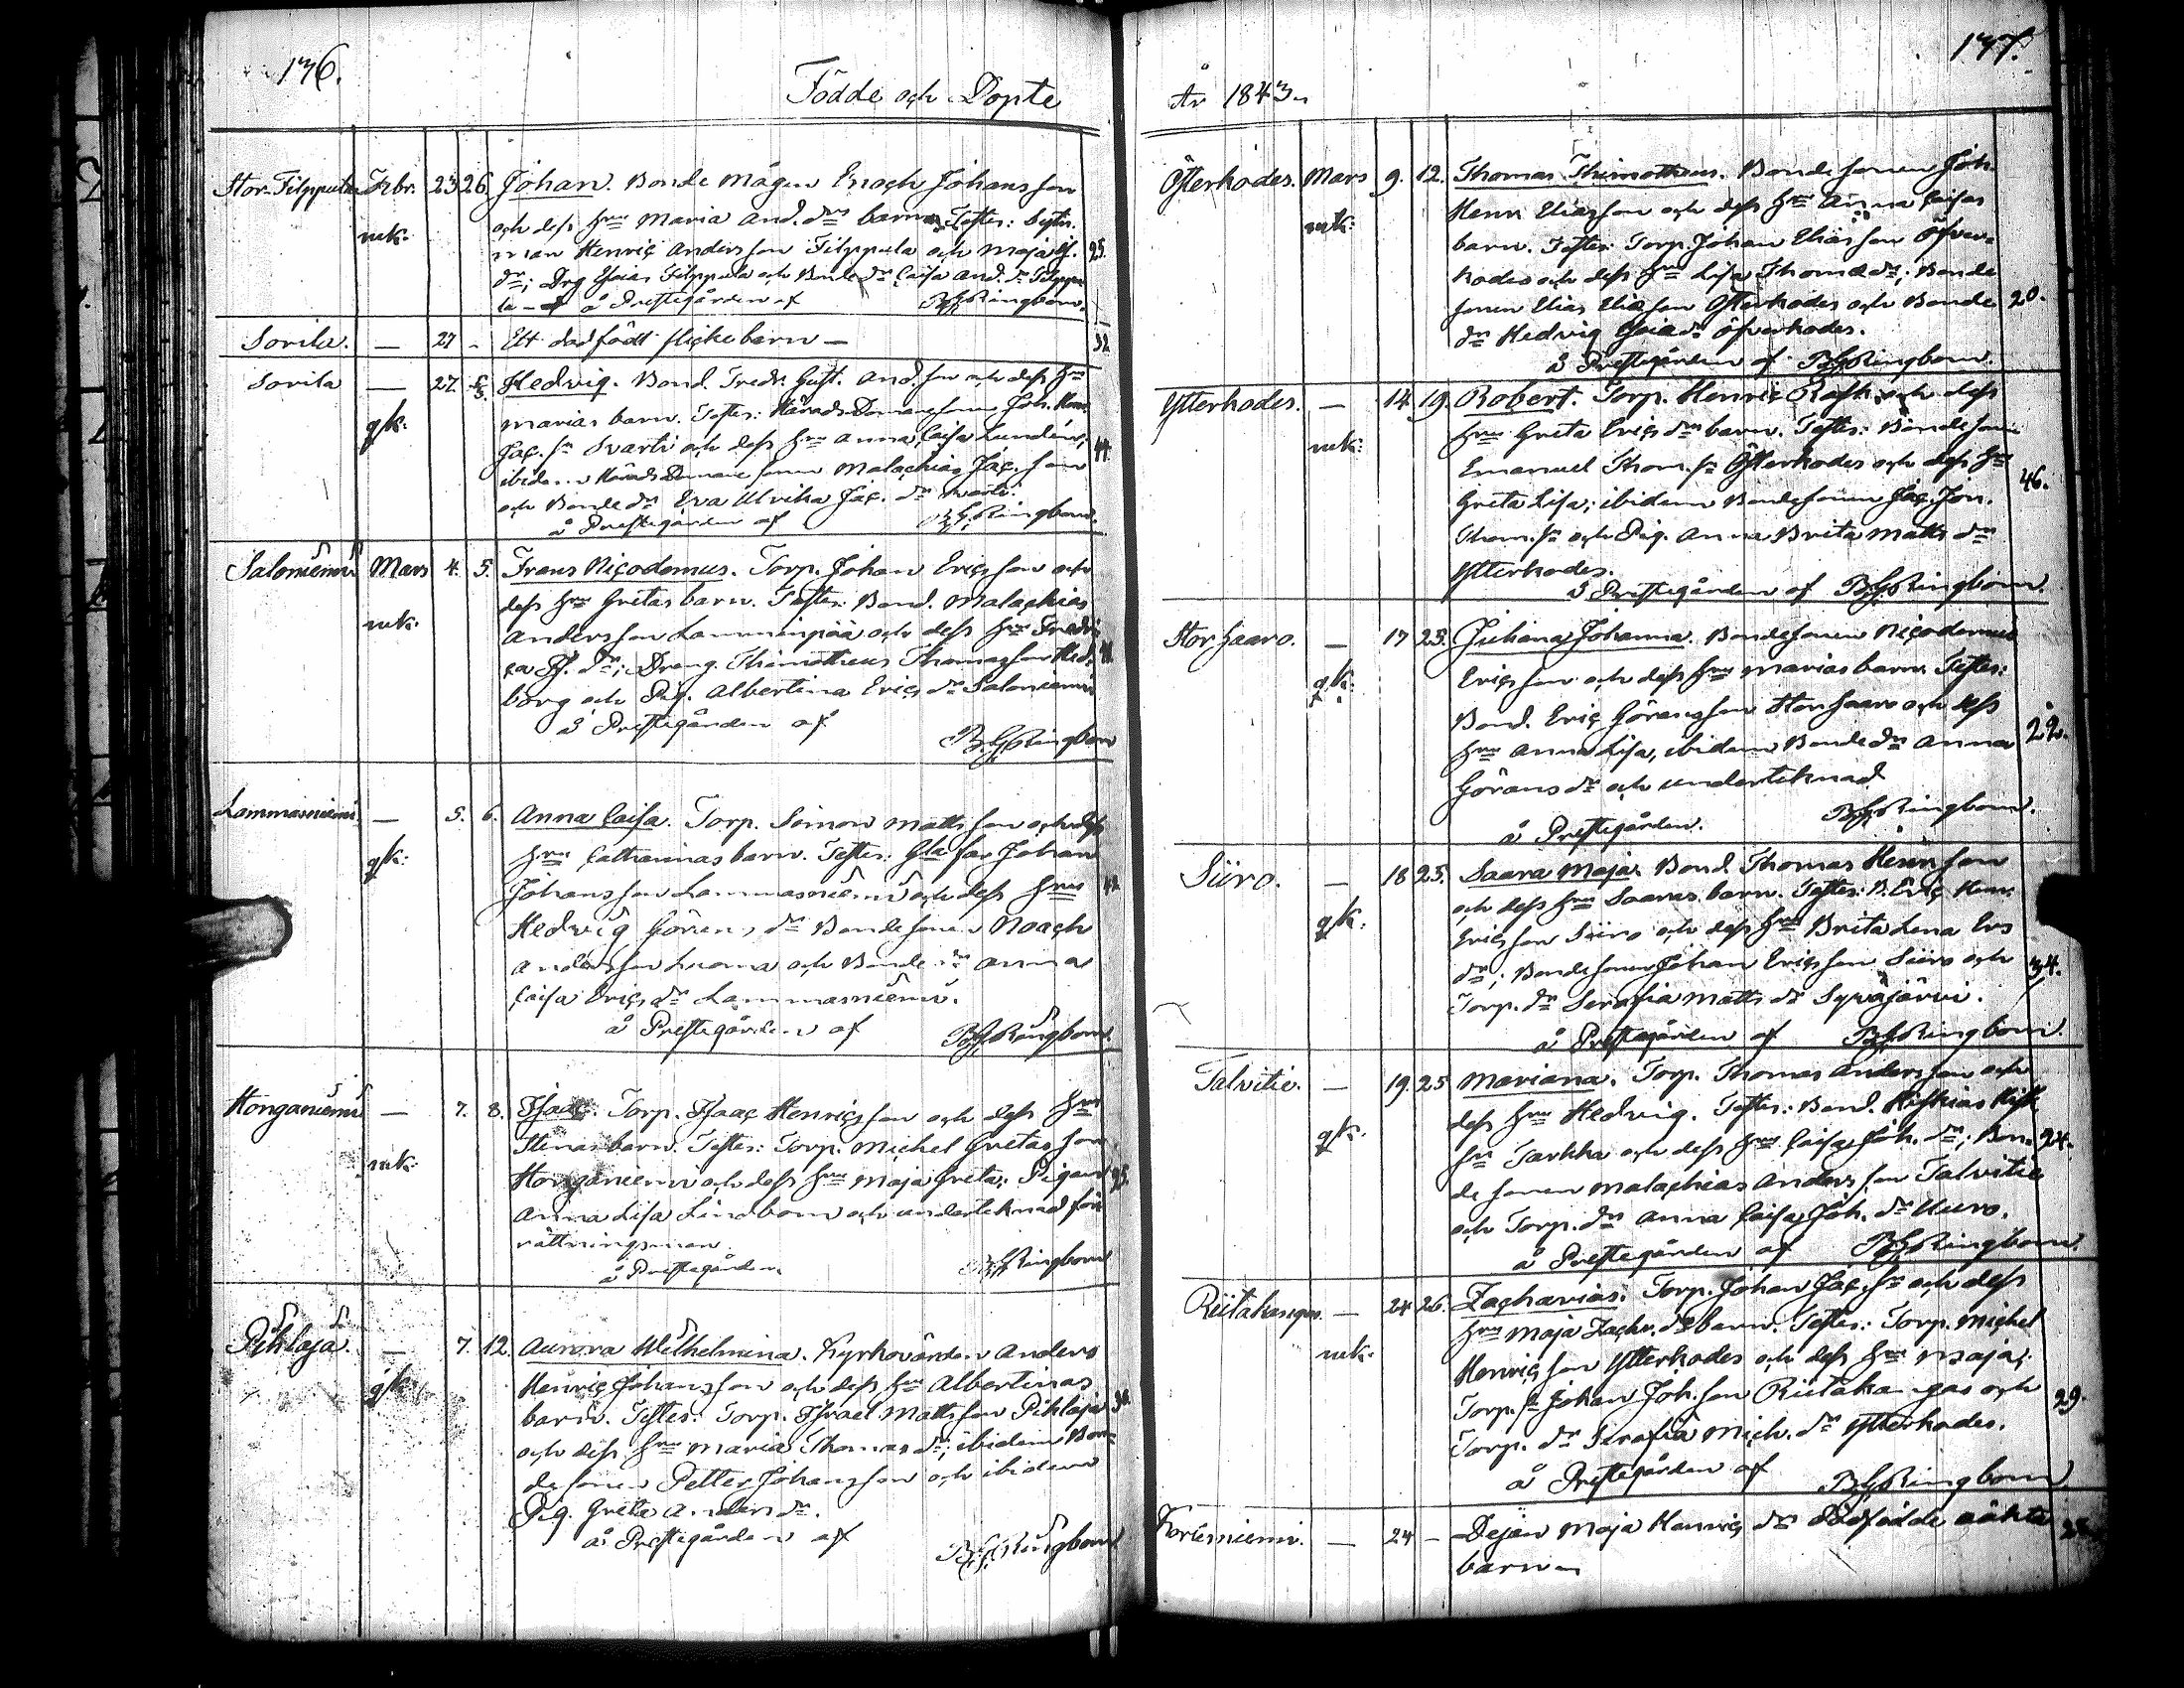 176.
Födde och Döpte
Stor-Filppula Febr. 23 26. Johan. Bonde mågen Enoch Johansson
mk: och dess Hru Maria And. drs barn. Testes: Bytes-
man Henric Andersson Filppula och Maja Es. 25.
dr; Drg Esaias Filppula och Bonde dr Caisa And. dr Filppu
la - å Prestegården af BGRingbom.
Sorila. — 27 - Ett dödfödt flickebarn — 32
Sorila — 27. Hedvig. Bond. Fredr. Gust. And. son och dess Hru
gk: Marias barn. Testes: Härads Domaresonen Joh. Henr.
Jac. sn Svarti och dess Hru Anna Caisa Lunden, 44.
ibidem HäradsDomare sonen Malachias Jac. son
och Bonde dr Eva Ulrika Jac. dr Svarti.
å Prestegården af BGRingbom.
Saloniemi Mars 4. 5. Frans Nicodemus. Torp. Johan Ericsson och
mk. dess Hru Gretas barn. Testes: Bond. Malachias
Andersson Lamminpää och dess Hru Fredri
ca Es. dr; Dreng. Thimotheus Thomasson Hed-
borg och Pig. Albertina Erics dr Saloniemi
å Prestegården af
BGRingbom
Lammasniemi — 5. 6. Anna Caisa. Torp. Simon Mattsson och dess
gk: Hru Catharinas barn. Testes: Johan
Johansson Lammasniemi och dess Hru 42.
Hedvig Görans dr Bondesonen Noach
Andersson Luoma och Bonde dr Anna
Caisa Erics dr Lammasniemi.
å Prestegården af BGRingbom.
Honganiemi — 7. 8. Isaac. Torp. Isaac Henricsson och dess Hru
mk: Stinas barn. Testes: Torp. Michel Gretasson
Honganiemi och dess Hru Maja Greta; Pigan
Anna Lisa Lindbom och undertecknad för
rättningsman.
å Prestegården. BGRingbom
Pihlaja. — 7. 12. Aurora Wilhelmina. Kyrkovärden Anders
gk. Henric Johansson och dess Hru Albertinas
barn. Testes: Torp. Israel Mattsson Pihlaja
och dess Hru Maria Thomas dr; ibidem Bon-
desonen Petter Johansson och ibidem
Pig. Greta Anders dr.
å Prestegården af
BGRingbom
177.
År 1843.
Österkodes. Mars 9. 12. Thomas Thimotheus. Bonde sonen Joh.
mk: Henr Eliasson och dess Hru Anna Caisas
barn. Testes: Torp. Johan Eliasson Öfver-
kodes och dess Hru Lisa Thomæ dr; Bonde
sonen Elias Eliasson Österkodes och Bonde 20.
dr Hedvig Esaiæ dr Öfverkodes.
å Prestegården af BGRingbom.
Ytterkodes. — 14. 19. Robert. Torp. Henric Rask och dess
mk: Hru Greta Erics drs barn. Testes: Bondesonen
Emanuel Thom. sn Österkodes och dess Hru
Greta Lisa; ibidem Bondesonen Jac. Joh. 46.
Thom. sn och Pig. Anna Brita Matts dr
Ytterkodes.
å Prestegården af BGRingbom.
Stor Saaro. — 17 23. Juliana Johanna. Bondesonen Nicodemus
gk: Ericsson och dess Hru Marias barn. Testes:
Bond. Eric Göransson Stor Saaro och dess
Hru Anna Lisa, ibidem Bonde dr Anna 22.
Görans dr och undertecknad.
å Prestegården. BGRingbom.
Siiro. — 18 25. Saara Maja. Bond. Thomas Henrsson
gk: och dess Hru Saaras barn. Testes: B. Eric Henr.
Ericsson Siiro och dess Hru Brita Lena Ers
dr; Bondesonen Johan Ericsson Siiro och 34.
Torp. dr Serafia Matts dr Syväjärvi.
å Prestegården af BGRingbom.
Talvitie. — 19. 25 Mariana. Torp. Thomas Andersson och
gk: dess Hru Hedvig. Testes: Bond. Hiskias Hisk.
sn Tarkka och dess Hru Caisa Joh. dr; Bon- 24.
de sonen Malachias Andersson Talvitie
och Torp. dr Anna Caisa Joh. dr Uuro.
å Prestegården af BGRingbom.
Riitakangas. — 24 26. Zacharias. Torp. Johan Jac. sn och dess
mk. Hru Maja Zachr. drs barn. Testes: Torp. Michel
Henricsson Ytterkodes och dess Hru Maja;
Torp. sn Johan Joh. son Riitakangas och 29.
Torp. dr Serafia Mich. dr Ytterkodes.
å Prestegården af BGRingbom
Kortesniemi. — 24 - Dejan Maja Henrics dr Dödfödde oäkta
barn